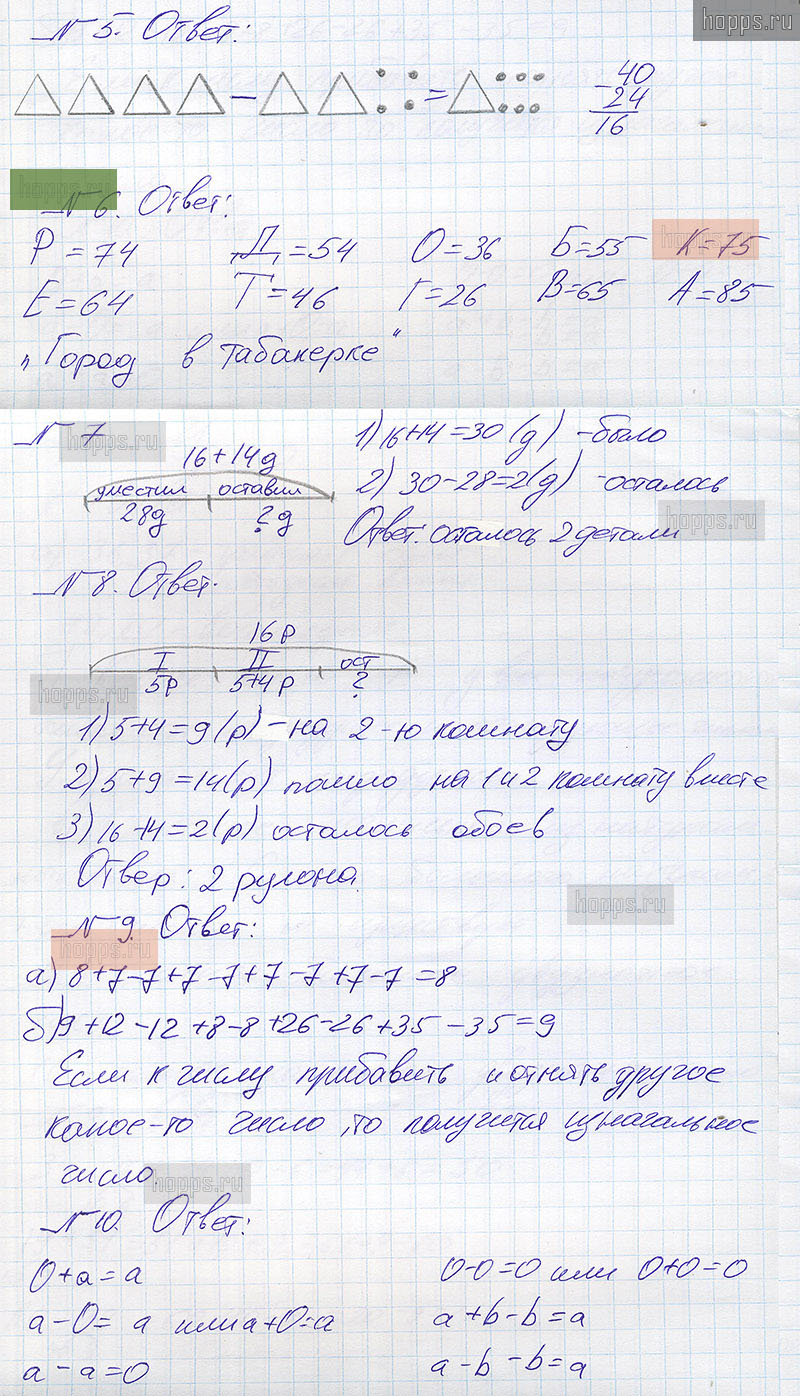 hopps.ru
№ 5. Ответ:
– = 
– 40
24
16
hopps.ru
№ 6. Ответ:
Р = 74 Д = 54 О = 36 Б = 55 К = 75
Е = 64 Т = 46 Г = 26 В = 65 А = 85
„Город в табакерке“
№ 7
hopps.ru
16 + 14 д
уместил оставил
28 д ? д
1) 16 + 14 = 30 (д) – было
2) 30 – 28 = 2 (д) – осталось
Ответ: осталось 2 детали
hopps.ru
№ 8. Ответ.
16 р
I II ост
5р 5+4 р ?
hopps.ru
1) 5 + 4 = 9 (р) – на 2 -ю комнату
2) 5 + 9 = 14 (р) пошло на 1 и 2 комнату вместе
3) 16 – 14 = 2 (р) осталось обоев
Отвер: 2 рулона.
hopps.ru
№ 9. Ответ:
hopps.ru
а) 8 + 7 – 7 + 7 – 7 + 7 – 7 + 7 – 7 = 8
б) 9 + 12 – 12 + 8 – 8 + 26 – 26 + 35 – 35 = 9
Если к числу прибавить и отнять другое
какое-то число, то получится изначальное
число.
hopps.ru
№ 10. Ответ:
0 + а = а 0 – 0 = 0 или 0 + 0 = 0
а – 0 = а или а + 0 = а а + b – b = а
а – а = 0 а – b – b = а